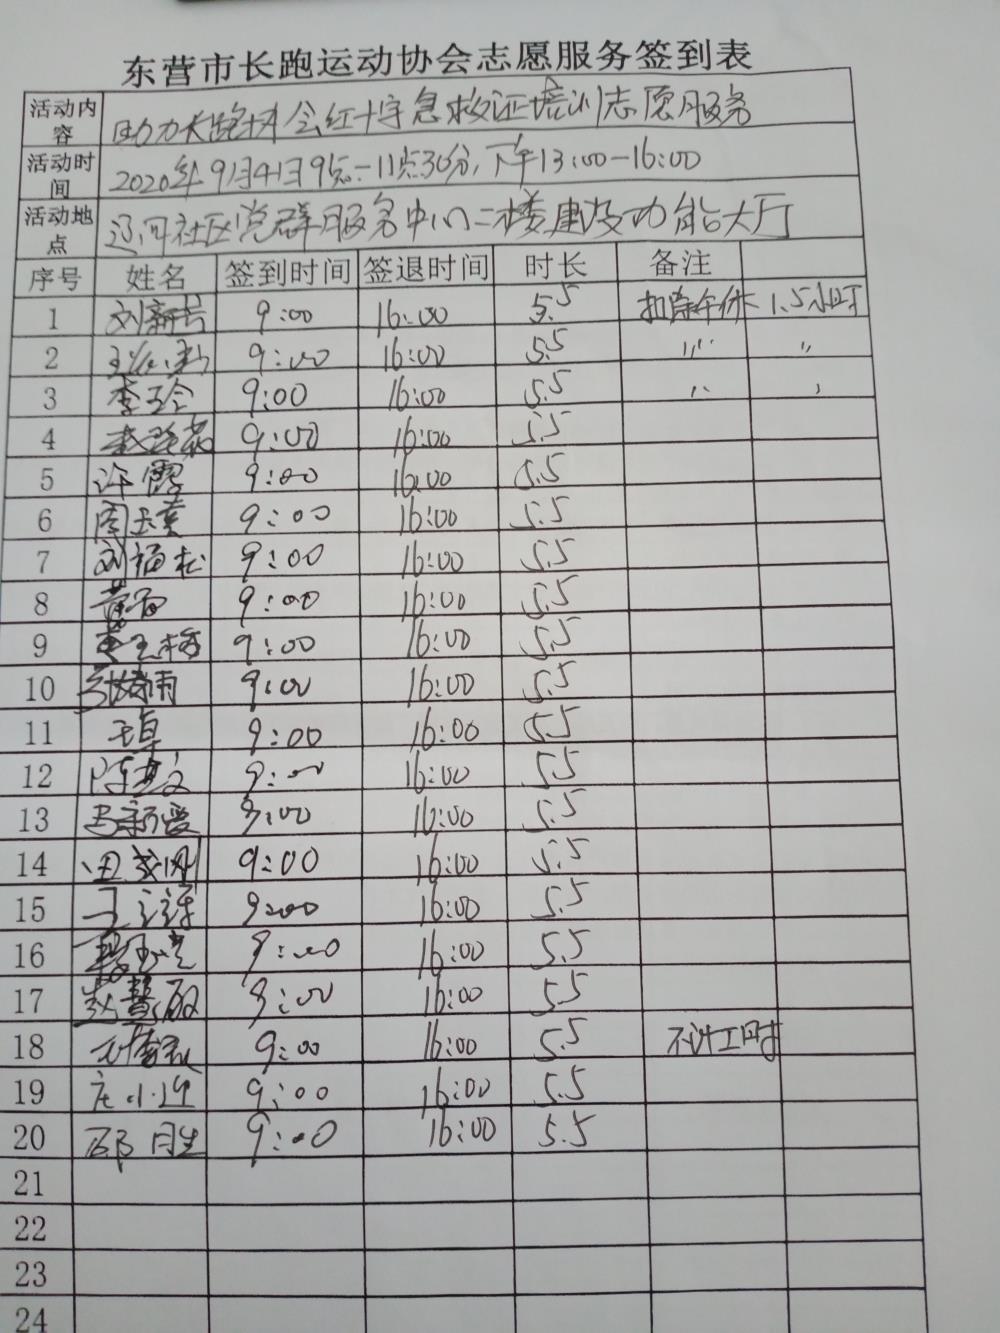 东营市长跑运动协会志愿服务签到表
活动内容 助力长跑协会红十字急救证培训志愿服务
活动时间 2020年9月4日9点-11点30分,下午13:00-16:00
活动地点 辽河社区党群服务中心二楼建设功能大厅
序号 姓名 签到时间 签退时间 时长 备注
1 9:00 16:00 5.5 扣除午休 1.5小时
2 9:00 16:00 5.5 〃 〃
3 李玲 9:00 16:00 5.5 〃 〃
4 9:00 16:00 5.5
5 许霞 9:00 16:00 5.5
6 周玉黄 9:00 16:00 5.5
7 刘福松 9:00 16:00 5.5
8 9:00 16:00 5.5
9 9:00 16:00 5.5
10 9:00 16:00 5.5
11 王卓 9:00 16:00 5.5
12 9:00 16:00 5.5
13 马新爱 9:00 16:00 5.5
14 田文刚 9:00 16:00 5.5
15 9:00 16:00 5.5
16 9:00 16:00 5.5
17 赵慧敏 9:00 16:00 5.5
18 9:00 16:00 5.5 不计工时
19 庄小迎 9:00 16:00 5.5
20 邵月生 9:00 16:00 5.5
21
22
23
24